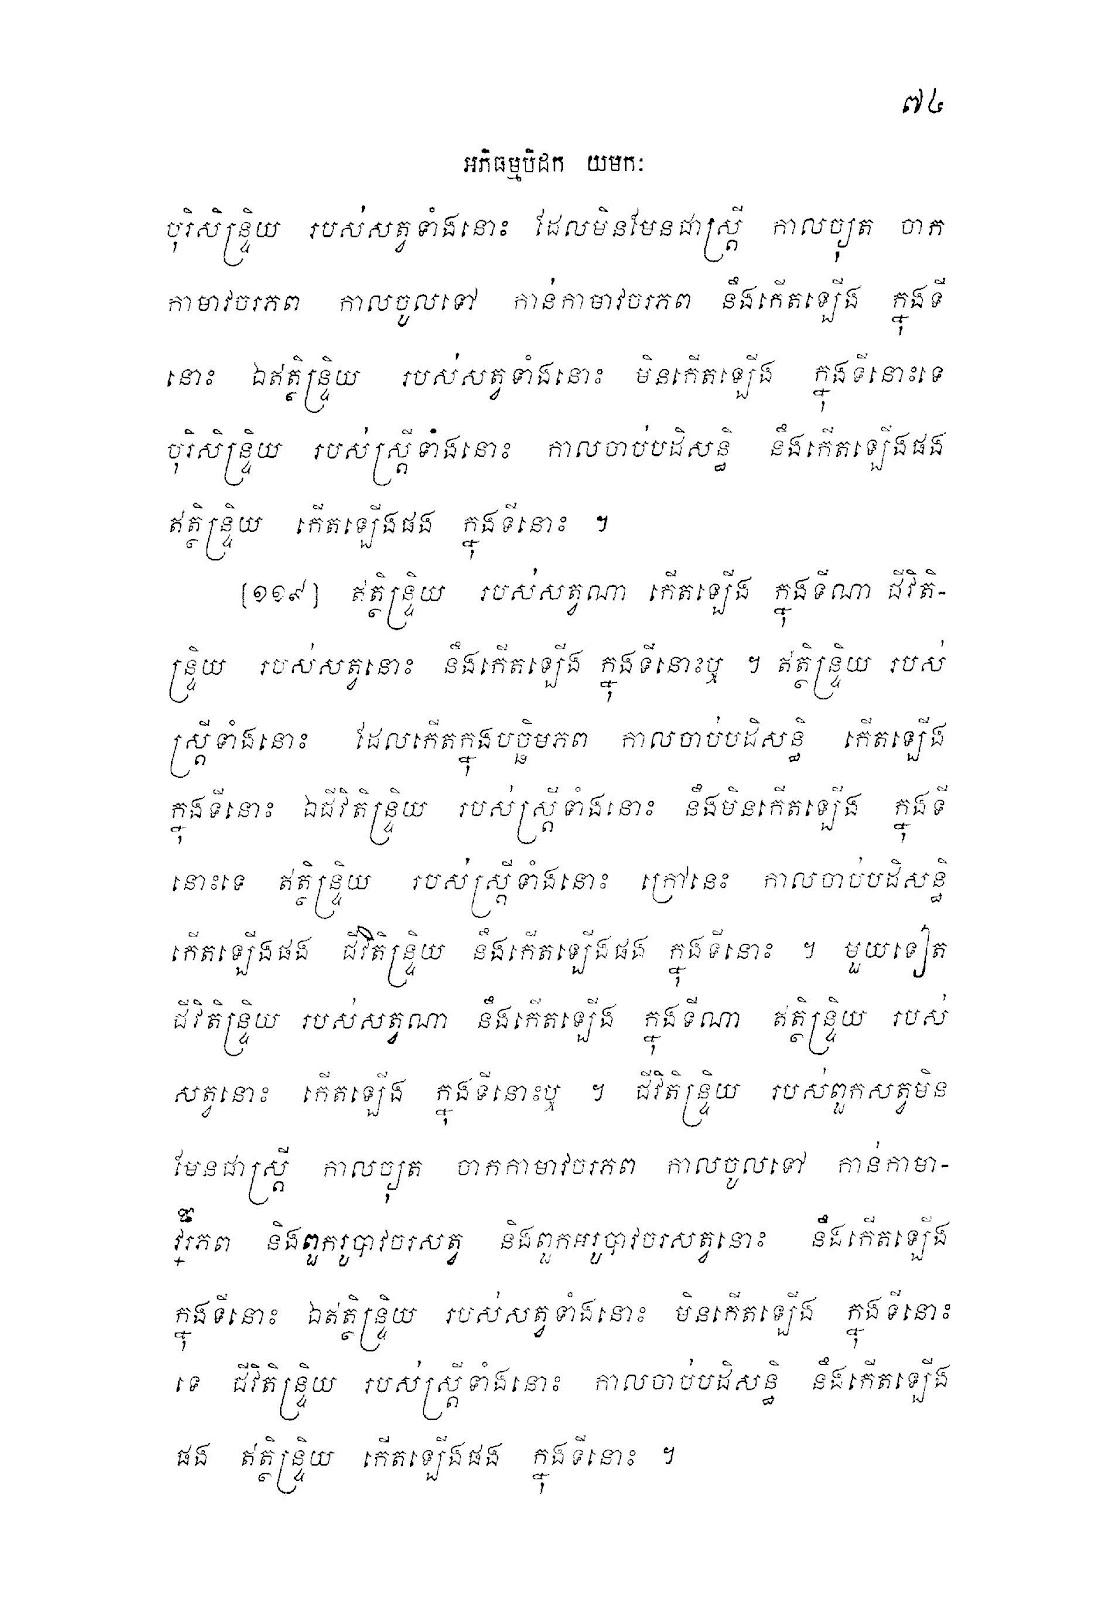 ៧៤
អភិធម្មបិដក យមកៈ
បុរិសិន្ទ្រិយ របស់សត្វទាំងនោះ ដែលមិនមែនជាស្ត្រី កាលច្យុត ចាក
កាមាវចរភព កាលចូលទៅ កាន់កាមាវចរភព នឹងកើតឡើង ក្នុងទី
នោះ ឯឥត្ថិន្ទ្រិយ របស់សត្វទាំងនោះ មិនកើតឡើង ក្នុងទីនោះទេ
បុរិសិន្ទ្រិយ របស់ស្ត្រីទាំងនោះ កាលចាប់បដិសន្ធិ នឹងកើតឡើងផង
ឥត្ថិន្ទ្រិយ កើតឡើងផង ក្នុងទីនោះ ។
[១១៩] ឥត្ថិន្ទ្រិយ របស់សត្វណា កើតឡើង ក្នុងទីណា ជីវិតិ-
ន្ទ្រិយ របស់សត្វនោះ នឹងកើតឡើង ក្នុងទីនោះឬ ។ ឥត្ថិន្ទ្រិយ របស់
ស្ត្រីទាំងនោះ ដែលកើតក្នុងបច្ឆិមភព កាលចាប់បដិសន្ធិ កើតឡើង
ក្នុងទីនោះ ឯជីវិតិន្ទ្រិយ របស់ស្ត្រីទាំងនោះ នឹងមិនកើតឡើង ក្នុងទី
នោះទេ ឥត្ថិន្ទ្រិយ របស់ស្ត្រីទាំងនោះ ក្រៅនេះ កាលចាប់បដិសន្ធិ
កើតឡើងផង ជីវិតិន្ទ្រិយ នឹងកើតឡើងផង ក្នុងទីនោះ ។ មួយទៀត
ជីវិតិន្ទ្រិយ របស់សត្វណា នឹងកើតឡើង ក្នុងទីណា ឥត្ថិន្ទ្រិយ របស់
សត្វនោះ កើតឡើង ក្នុងទីនោះឬ ។ ជីវិតិន្ទ្រិយ របស់ពួកសត្វមិន
មែនជាស្ត្រី កាលច្យុត ចាកកាមាវចរភព កាលចូលទៅ កាន់កាមា-
វចរភព និងពួករូបាវចរសត្វ និងពួកអរូបាវចរសត្វនោះ នឹងកើតឡើង
ក្នុងទីនោះ ឯឥត្ថិន្ទ្រិយ របស់សត្វទាំងនោះ មិនកើតឡើង ក្នុងទីនោះ
ទេ ជីវិតិន្ទ្រិយ របស់ស្ត្រីទាំងនោះ កាលចាប់បដិសន្ធិ នឹងកើតឡើង
ផង ឥត្ថិន្ទ្រិយ កើតឡើងផង ក្នុងទីនោះ ។